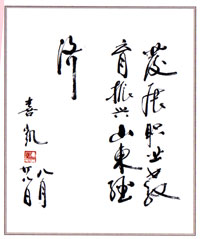 发展职业教
育振兴山东经
济
喜凯
八月
廿八日